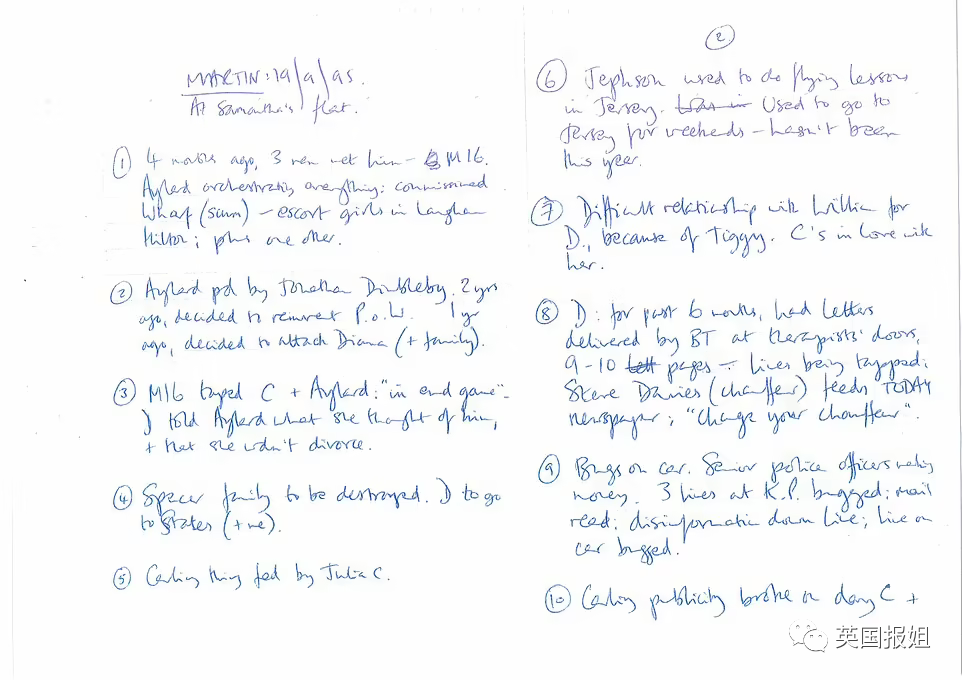 MARTIN: 19/9/95.
At Samantha's flat.
① 4 months ago, 3 men met him – MI6.
Aylard orchestrating everything: commissioned
Wharf (scum) – escort girls in Langham
Hilton; plus one other.
② Aylard pd by Jonathan Dimbleby. 2 yrs
ago, decided to reinvent P.o.W. 1 yr
ago, decided to attack Diana (+ family).
③ MI6 taped C + Aylard: "in end game" –
D told Aylard what she thought of him,
+ that she wdn't divorce.
④ Spencer family to be destroyed. D to go
to States (+ve).
⑤ Carling thing fed by Julia C.
②
⑥ Jephson used to do flying lessons
in Jersey. Used to go to
Jersey for weekends – hasn't been
this year.
⑦ Difficult relationship with William for
D., because of Tiggy. C's in love with
her.
⑧ D: for past 6 months, had letters
delivered by BT at therapists' doors,
9–10 pages – lines being tapped:
Steve Davies (chauffeur) feeds TODAY
newspaper; "Change your chauffeur".
⑨ Bugs on car. Senior police officers making
money. 3 lines at K.P. bugged: mail
read: disinformation down line; line on
car bugged.
⑩ Carling publicity broke on day C +
英国报姐